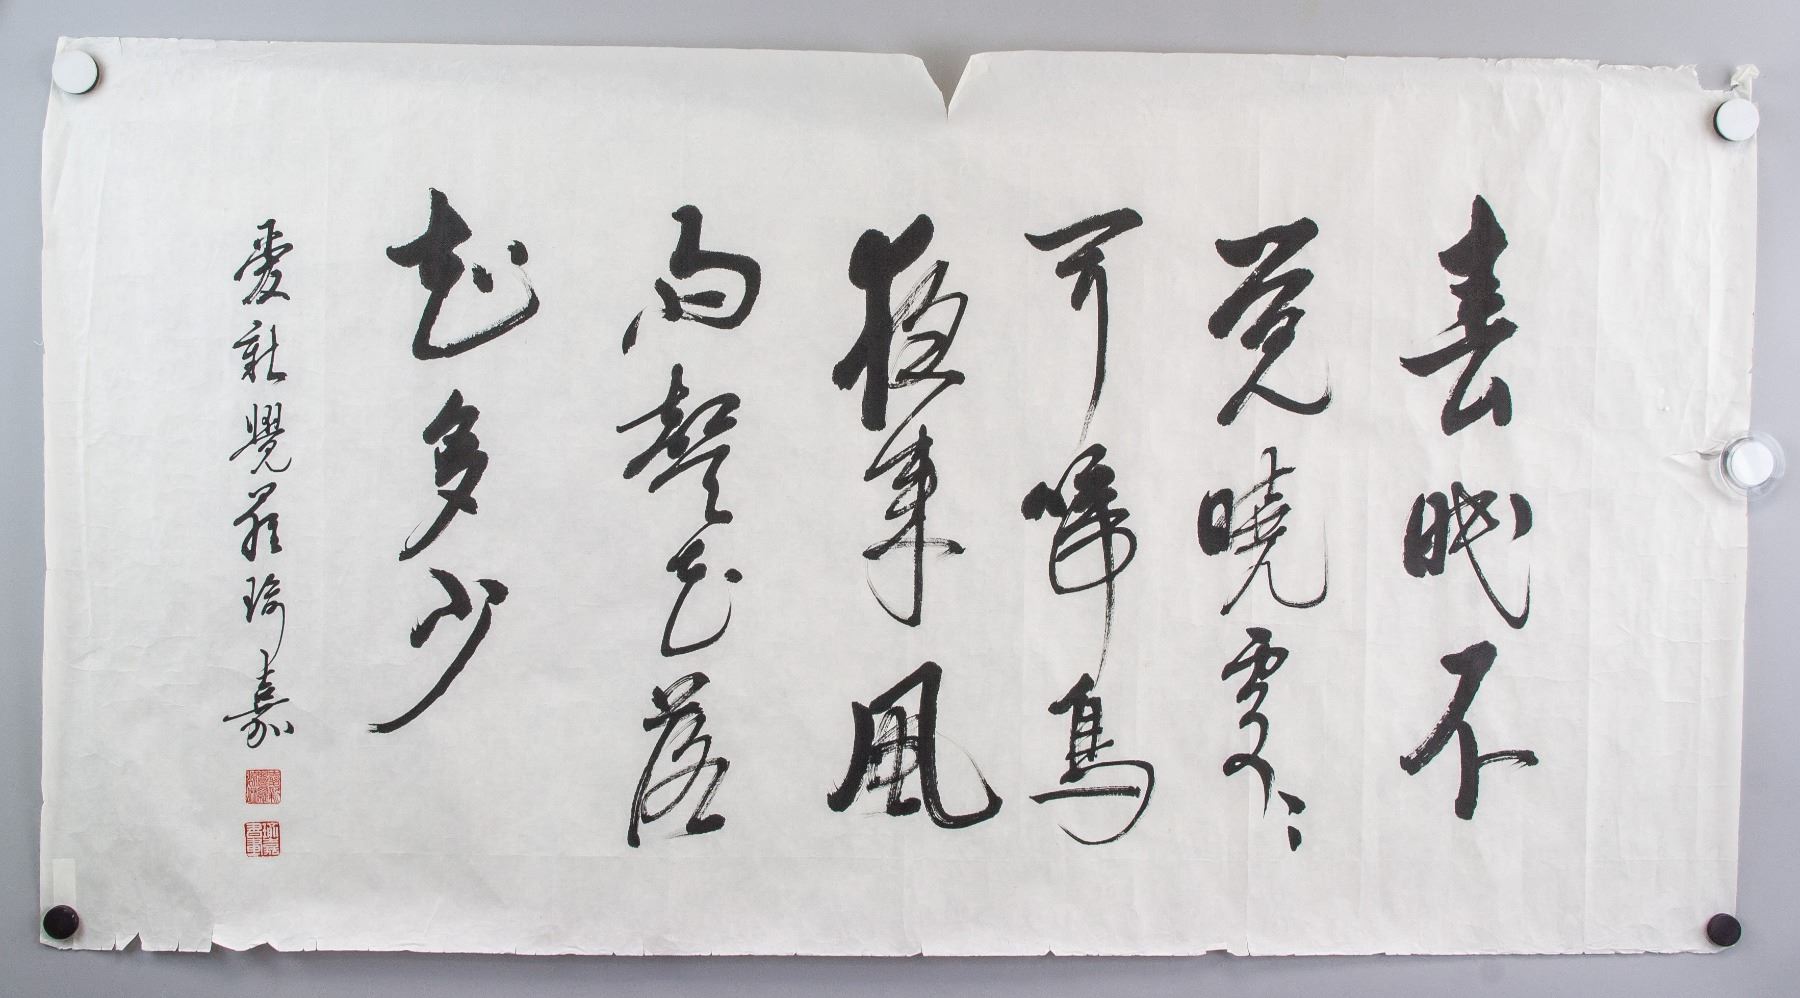 春眠不
觉曉處〻
闻啼鳥
夜来風
雨聲花落
知多少
愛新覺羅瑜嘉